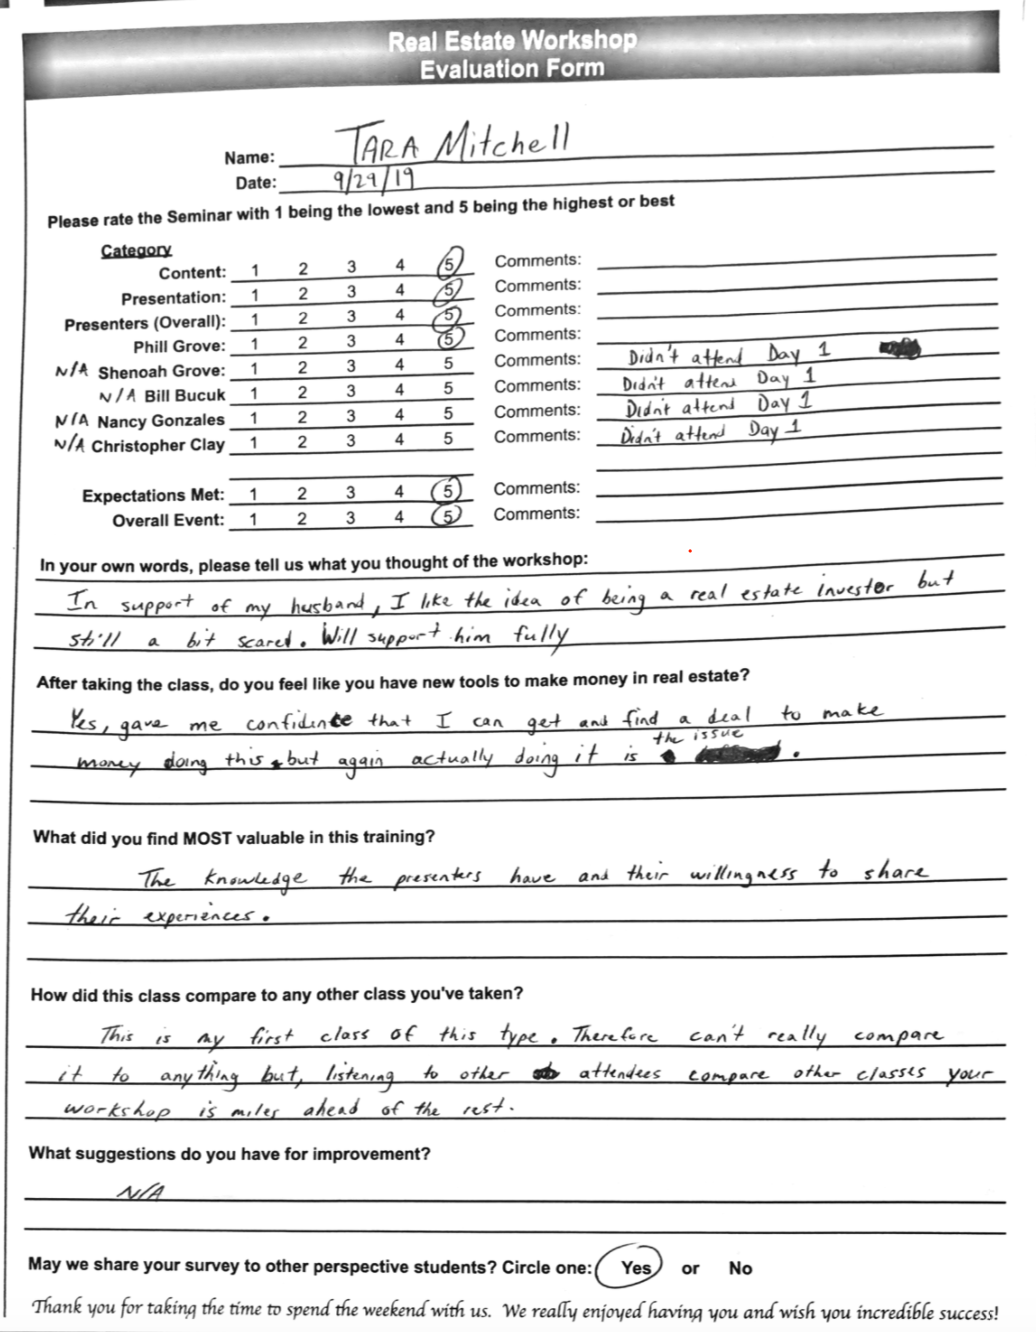 Real Estate Workshop
Evaluation Form
Name: TARA Mitchell
Date: 9/29/19
Please rate the Seminar with 1 being the lowest and 5 being the highest or best
Category
Content: 1 2 3 4 5 Comments:
Presentation: 1 2 3 4 5 Comments:
Presenters (Overall): 1 2 3 4 5 Comments:
Phill Grove: 1 2 3 4 5 Comments:
N/A Shenoah Grove: 1 2 3 4 5 Comments: Didn't attend Day 1
N/A Bill Bucuk 1 2 3 4 5 Comments: Didn't attend Day 1
N/A Nancy Gonzales 1 2 3 4 5 Comments: Didn't attend Day 1
N/A Christopher Clay 1 2 3 4 5 Comments: Didn't attend Day 1
Expectations Met: 1 2 3 4 5 Comments:
Overall Event: 1 2 3 4 5 Comments:
In your own words, please tell us what you thought of the workshop:
In support of my husband, I like the idea of being a real estate investor but
still a bit scared. Will support him fully
After taking the class, do you feel like you have new tools to make money in real estate?
Yes, gave me confidence that I can get and find a deal to make
money doing this, but again actually doing it is the issue.
What did you find MOST valuable in this training?
The knowledge the presenters have and their willingness to share
their experiences.
How did this class compare to any other class you've taken?
This is my first class of this type. Therefore can't really compare
it to anything but, listening to other attendees compare other classes your
workshop is miles ahead of the rest.
What suggestions do you have for improvement?
N/A
May we share your survey to other perspective students? Circle one: Yes or No
Thank you for taking the time to spend the weekend with us. We really enjoyed having you and wish you incredible success!